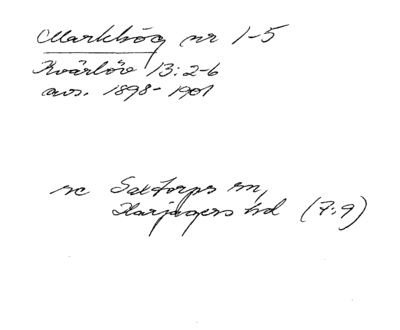 Markhög nr 1-5
Kvärlöv 13:2-6
avs. 1898-1901
se Saxtorps sn,
Harjagers hd (7:9)